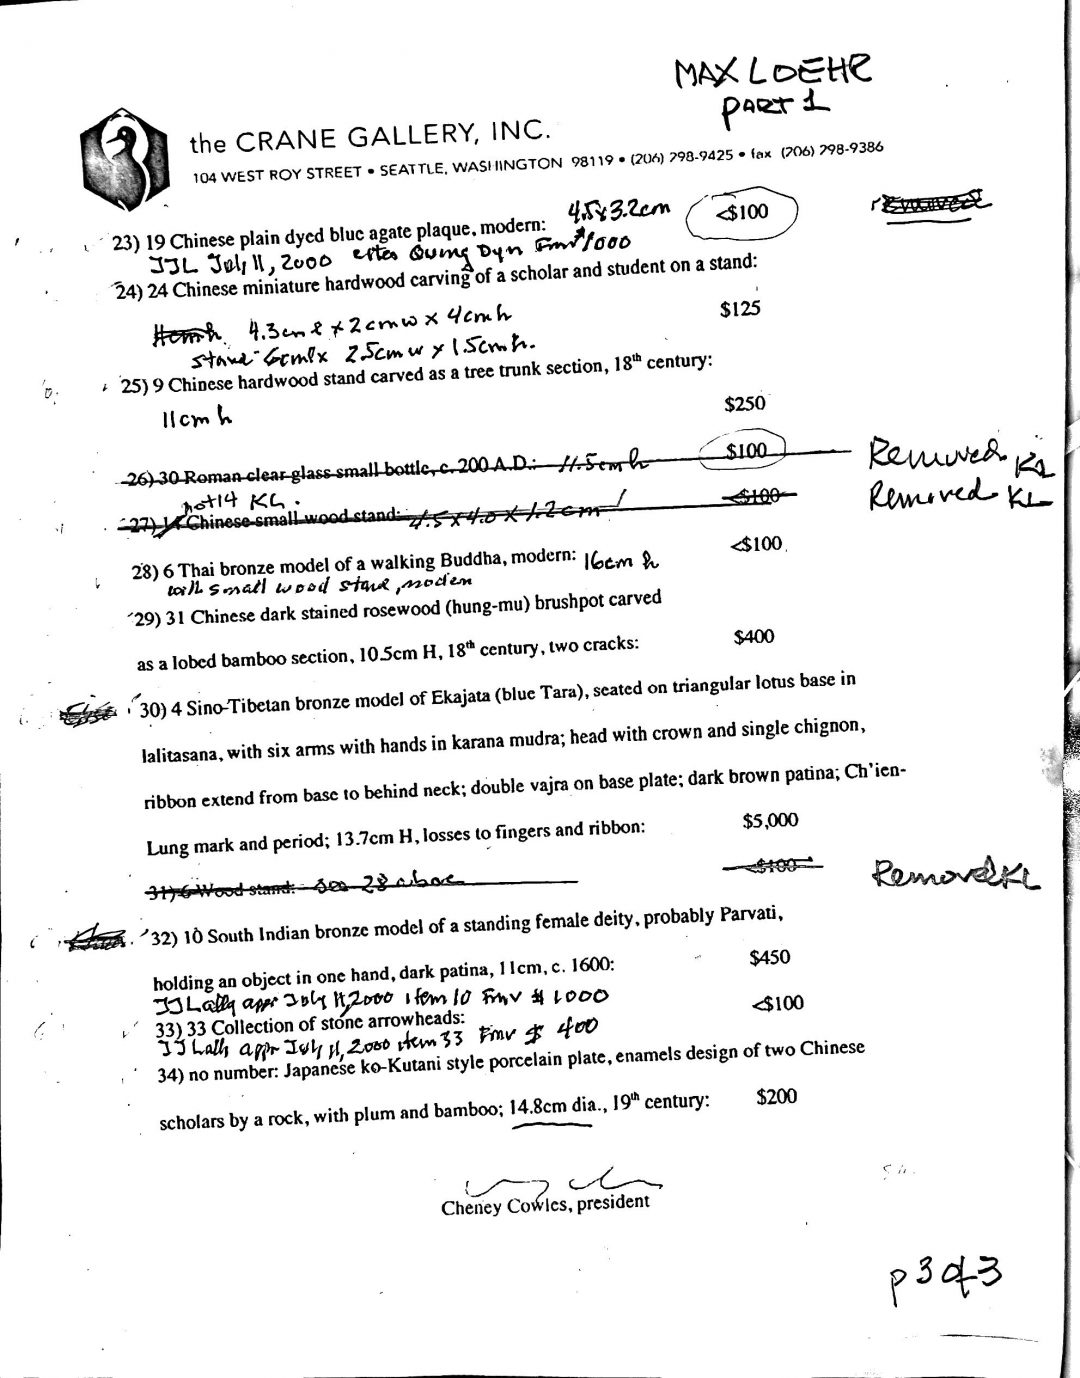 MAX LOEHR
PART 1
the CRANE GALLERY, INC.
104 WEST ROY STREET • SEATTLE, WASHINGTON 98119 • (206) 298-9425 • fax (206) 298-9386
23) 19 Chinese plain dyed blue agate plaque, modern: 4.5x3.2cm <$100 removed
JJL July 11, 2000 Qung Dyn Fmv $1000
24) 24 Chinese miniature hardwood carving of a scholar and student on a stand:
$125
4.3cm l x 2cm w x 4cm h
stand - 6cm l x 2.5cm w x 1.5cm h.
25) 9 Chinese hardwood stand carved as a tree trunk section, 18th century:
11cm h $250
26) 30 Roman clear glass small bottle, c. 200 A.D.: 11.5cm h $100 Removed KL
not 14 KL.
27) 14 Chinese small wood stand: 4.5 x 4.0 x 1.2cm <$100 Removed KL
28) 6 Thai bronze model of a walking Buddha, modern: 16cm h <$100
with small wood stand, modern
29) 31 Chinese dark stained rosewood (hung-mu) brushpot carved
as a lobed bamboo section, 10.5cm H, 18th century, two cracks: $400
30) 4 Sino-Tibetan bronze model of Ekajata (blue Tara), seated on triangular lotus base in
lalitasana, with six arms with hands in karana mudra; head with crown and single chignon,
ribbon extend from base to behind neck; double vajra on base plate; dark brown patina; Ch'ien-
Lung mark and period; 13.7cm H, losses to fingers and ribbon: $5,000
31) 6 Wood stand: see 28 above <$100 Removed KL
32) 10 South Indian bronze model of a standing female deity, probably Parvati,
holding an object in one hand, dark patina, 11cm, c. 1600: $450
JJ Lally appr July 11, 2000 item 10 Fmv $1000
33) 33 Collection of stone arrowheads: <$100
JJ Lally appr July 11, 2000 item 33 Fmv $ 400
34) no number: Japanese ko-Kutani style porcelain plate, enamels design of two Chinese
scholars by a rock, with plum and bamboo; 14.8cm dia., 19th century: $200
Cheney Cowles, president
p 3 of 3